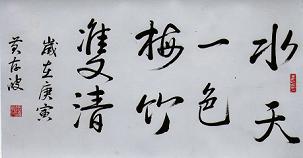 水天
一色
梅竹
雙清
歲在庚寅
黃存波